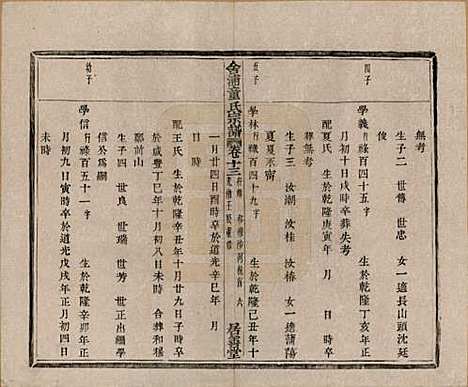 四子
五子
幼子
無考
生子二 世傳 世忠 女一適長山頭沈廷
學義行祿百四十五字 生於乾隆丁亥年正
月初十日戌時卒葬失考
配夏氏 生於乾隆庚寅年 月 日 時卒
葬無考
生子三 汝潮 汝桂 汝椿 女一適蒲蕩
夏夜不甯
學林行祿百四十九字 生於乾隆己丑年十
會浦童氏宗譜 卷十三
居善堂
一月廿四日酉時卒於道光辛巳年 月
日時
配王氏 生於乾隆辛丑年十月廿九日子時卒
於咸豐丁巳年十月初八日未時 合葬和樣
鄭前山
生子四 世良 世瑞 世芳 世正出繼學
信公為子
學信行祿百五十一字 生於乾隆辛卯年正
月初九日寅時卒於道光戊戌年正月初四日
未時